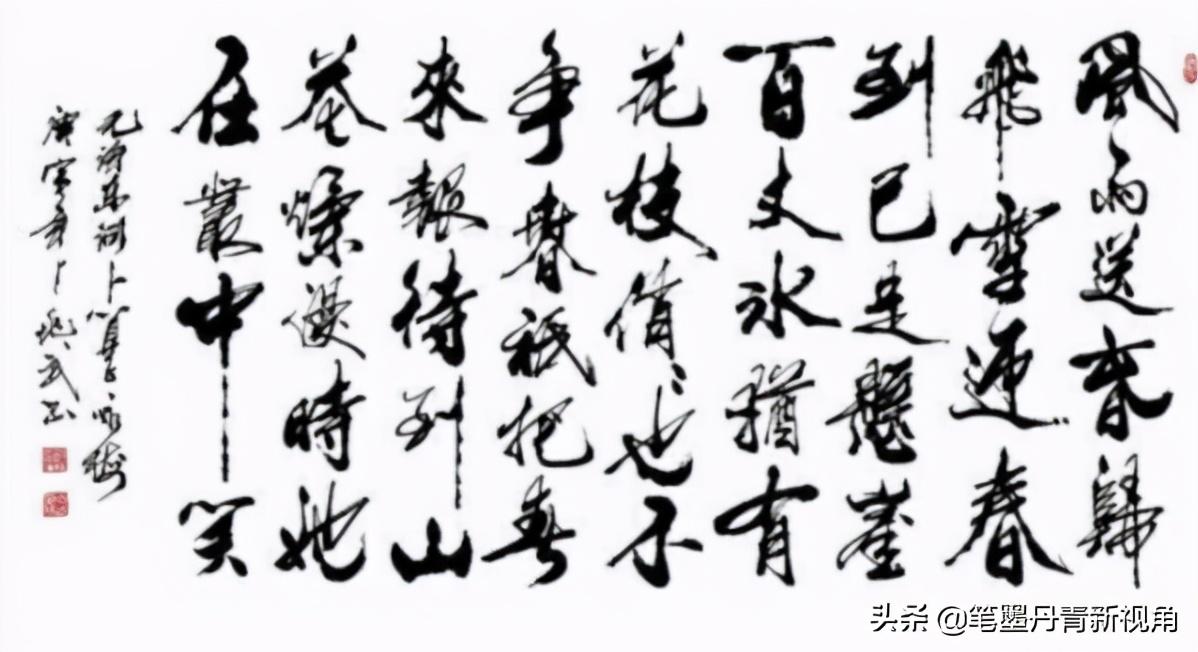 風雨送春歸
飛雪迎春
到已是懸崖
百丈冰猶有
花枝俏〻也不
爭春祇把春
來報待到山
花爛漫時她
在叢中笑
毛澤東詞卜算子咏梅
庚寅年 武书
头条 @笔墨丹青新视角